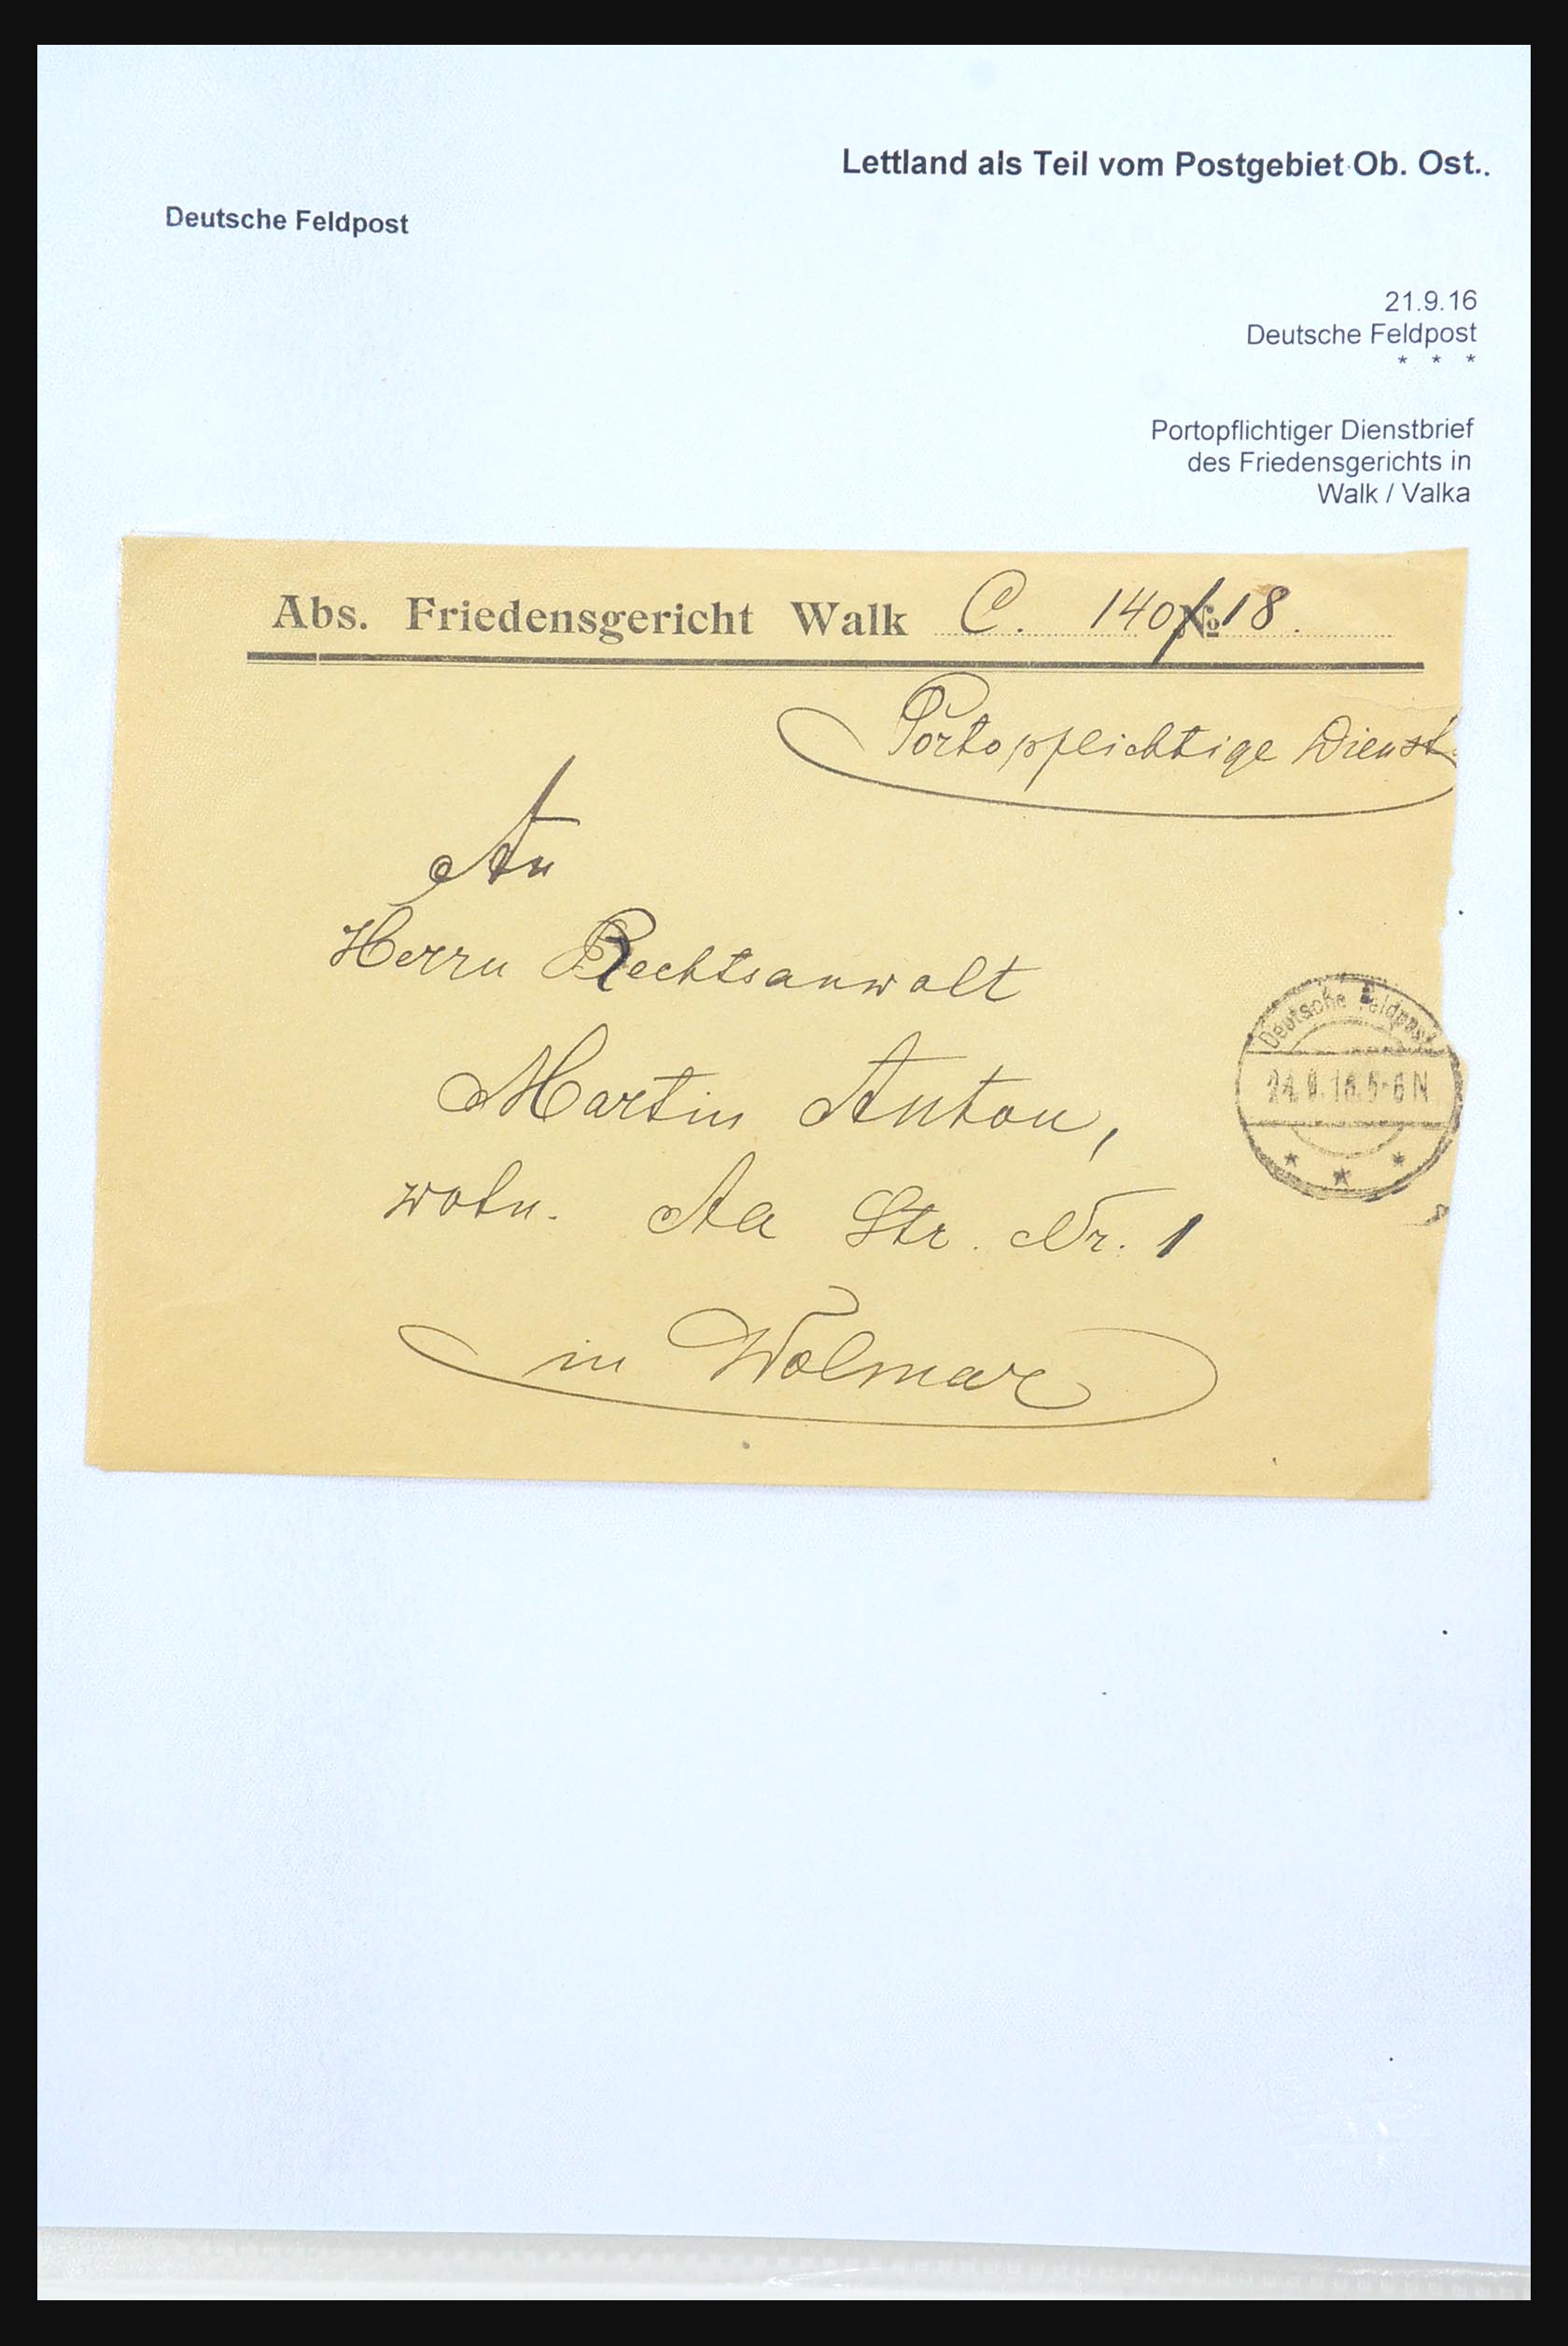 Lettland als Teil vom Postgebiet Ob. Ost..
Deutsche Feldpost
21.9.16
Deutsche Feldpost
* * *
Portopflichtiger Dienstbrief
des Friedensgerichts in
Walk / Valka
Abs. Friedensgericht Walk C. 140/18.
Portopflichtige Dienst
An
Herrn Rechtsanwalt
Martin Anton,
wohn. Aa Str. Nr. 1
in Wolmar
Deutsche Feldpost
5-6 N
* * *